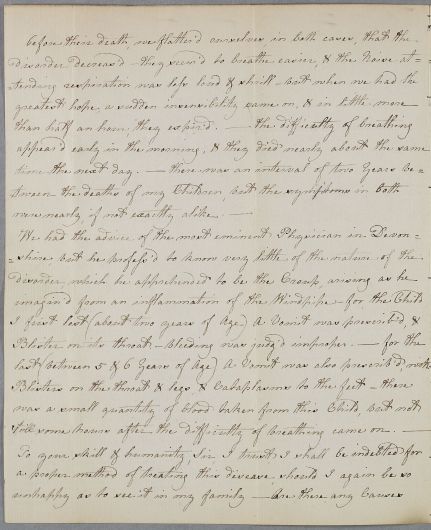 before their death, we flatter'd ourselves in both cases, that the
disorder decreas'd - they seem'd to breathe easier, & the Noise at=
=tending respiration was less loud & shrill - but when we had the
greatest hope, a sudden insensibility came on, & in little more
than half an hour, they expir'd. — the difficulty of breathing
appear'd early in the morning, & they died nearly about the same
time the next day. — there was an interval of two Years be=
tween the deaths of my Children but the symptoms in both
were nearly if not exactly alike. —
We had the advice of the most eminent Physician in Devon=
=shire, but he profess'd to know very little of the nature of the
disorder, which he apprehended to be the Croup, arising as he
imagin'd from an inflammation of the Windpipe - for the Child
I first lost (about two years of Age) a Vomit was prescrib'd &
Blister on its throat - Bleeding was judg'd improper. — for the
last (between 5 & 6 Years of Age) a Vomit was also prescrib'd, with
Blisters on the throat & legs & Cataplasms to the feet - there
was a small quantity of blood taken from this Child, but not
till some hours after the difficulty of breathing came on. —
To your skill & humanity, Sir I trust I shall be indebted for
a proper method of treating this disease, should I again be so
unhappy as to see it in my family — are there any Causes